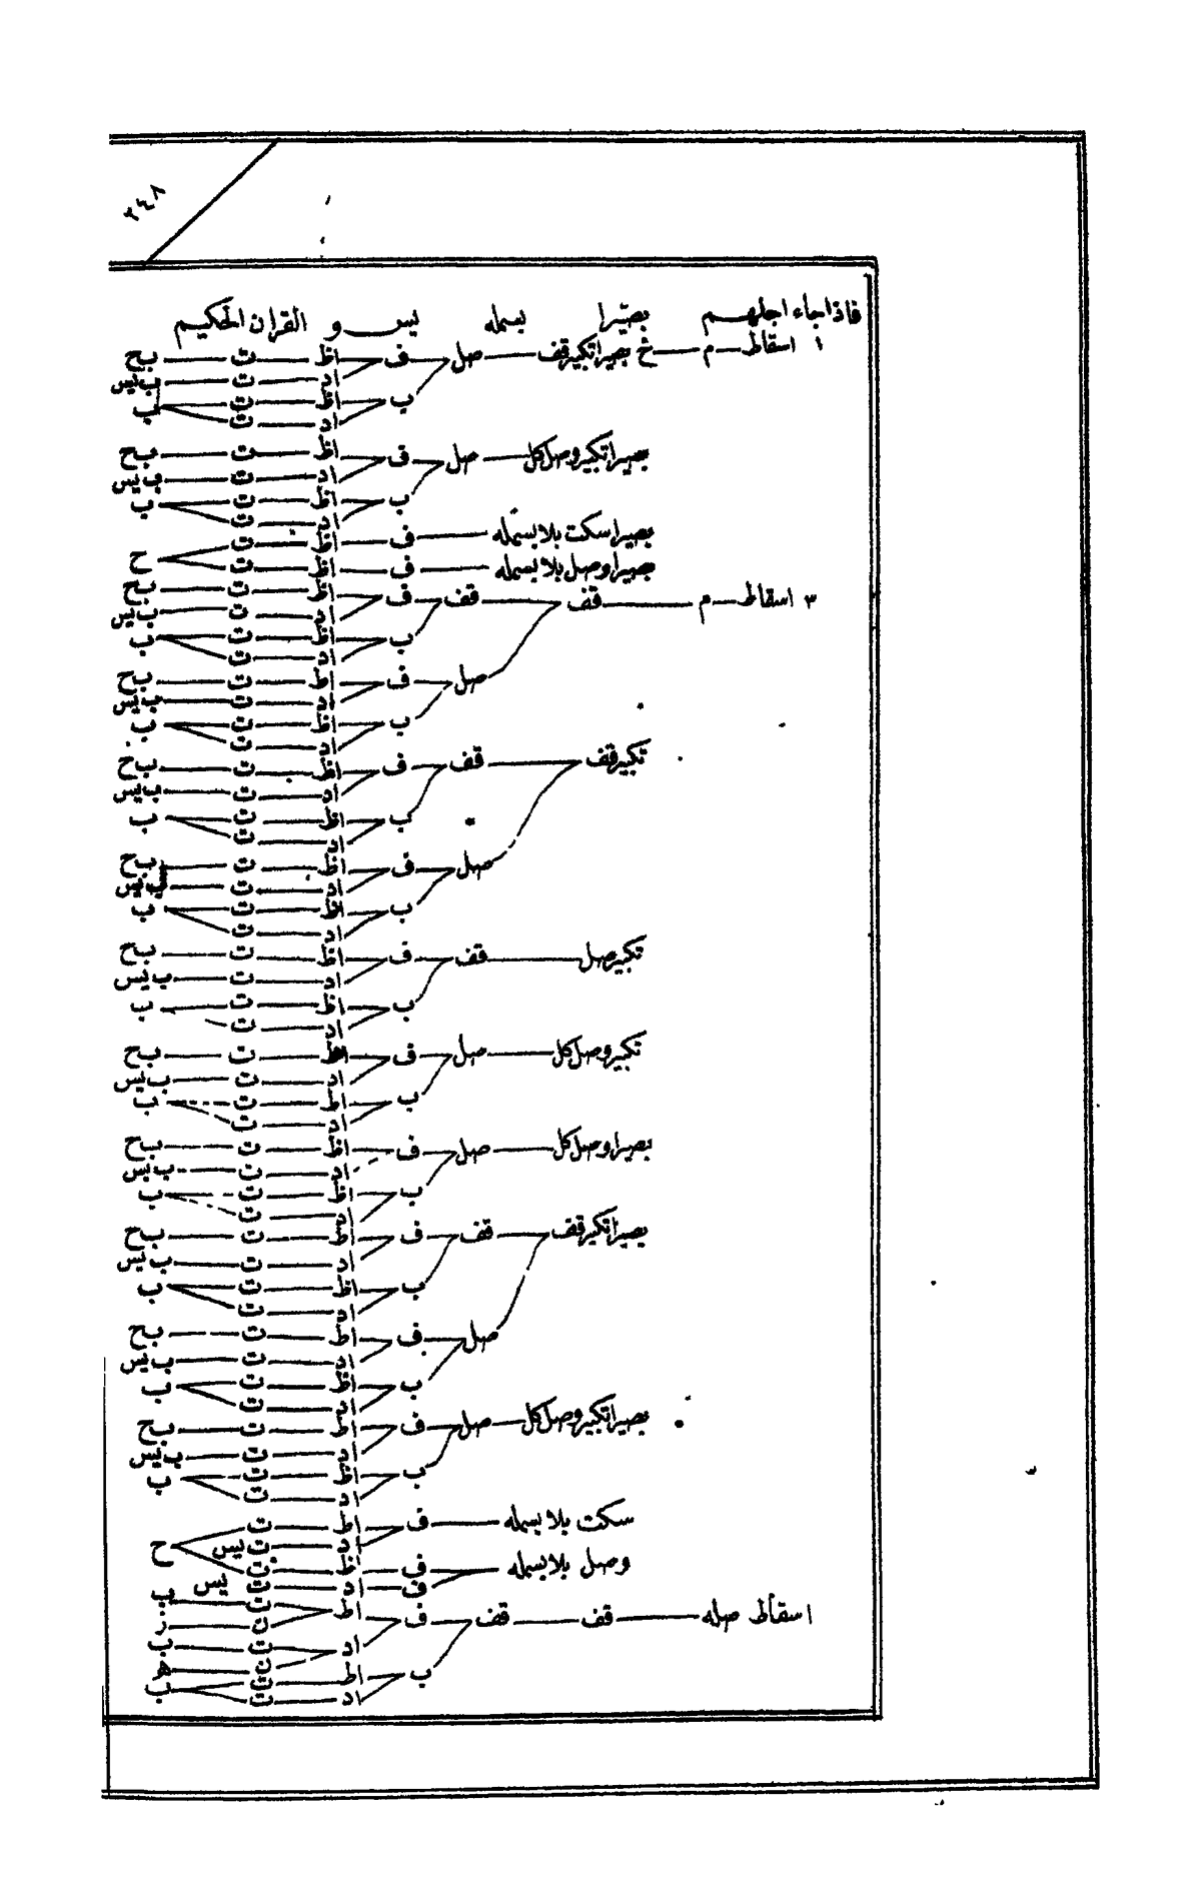 ٢٤٨
فاذا جاء اجلهم بصيرا بسمله يس و القران الحكيم
١ اسقاط م خ بصيرا تكبير قف صل ف اظ ت ب ح
اد ت ب يس
ب اظ ت ب
اد ت
بصيرا تكبير وصل كل صل ف اظ ت ب ح
اد ت ب يس
ب اظ ت ب
اد ت
بصيرا سكت بلا بسمله ف اظ ت ح
بصيرا وصل بلا بسمله ف اظ ت
٣ اسقاط م قف قف ف اظ ت ب ح
اد ت ب يس
ب اظ ت ب
اد ت
صل ف اظ ت ب ح
اد ت ب يس
ب اظ ت ب
اد ت
تكبير قف قف ف اظ ت ب ح
اد ت ب يس
ب اظ ت ب
اد ت
صل ف اظ ت ب ح
اد ت ب يس
ب اظ ت ب
اد ت
تكبير صل قف ف اظ ت ب ح
اد ت ب يس
ب اظ ت ب
اد ت
تكبير وصل كل صل ف اظ ت ب ح
اد ت ب يس
ب اظ ت ب
اد ت
بصيرا وصل كل صل ف اظ ت ب ح
اد ت ب يس
ب اظ ت ب
اد ت
بصيرا تكبير قف قف ف اظ ت ب ح
اد ت ب يس
ب اظ ت ب
اد ت
صل ف اظ ت ب ح
اد ت ب يس
ب اظ ت ب
اد ت
بصيرا تكبير وصل كل صل ف اظ ت ب ح
اد ت ب يس
ب اظ ت ب
اد ت
سكت بلا بسمله ف اظ ت ح
اد ت يس
وصل بلا بسمله ف اظ ت
ف اد ت يس
اسقاط صله قف قف ف اظ ت ب
ن ز
اد ت ب
ن ھ
ب اظ ت ب
اد ت